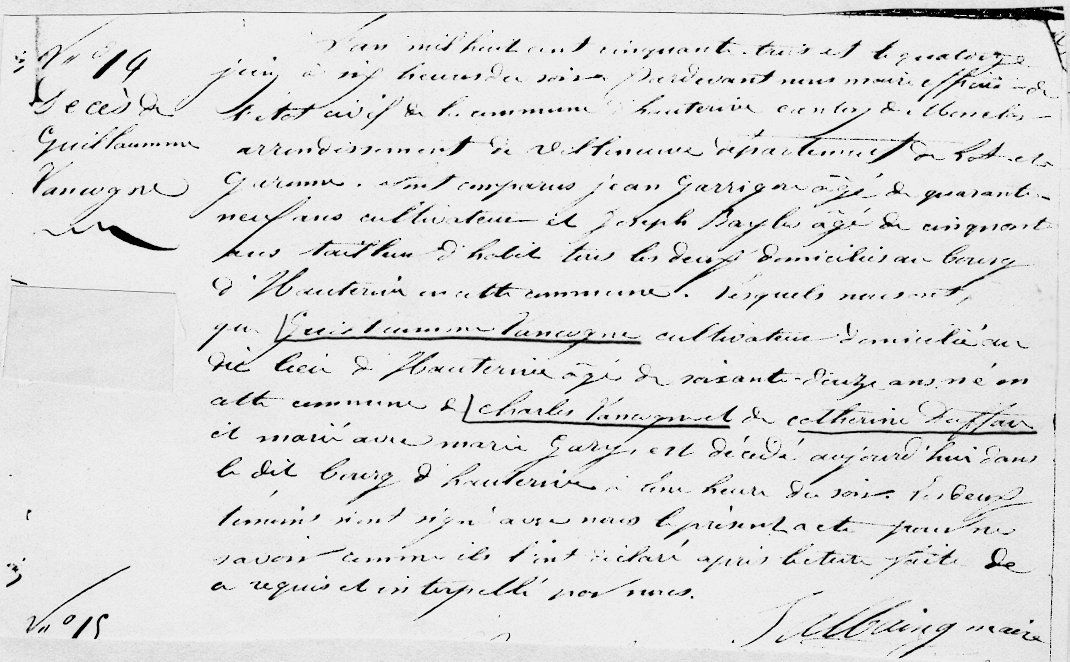 N° 14
Décès de
Guillaumme
Vancogne
L'an mil huit cent cinquante trois et le quatorze
juin à six heures du soir pardevant nous maire officier de
l'état civil de la commune d'hauterive canton de Monclar
arrondissement de Villeneuve département de Lot et
Garonne. sont comparus jean Garrigou âgé de quarante
neuf ans cultivateur et Joseph Bayles âgé de cinquante
ans tailleur d'habit tous les deux domiciliés au bourg
d'Hauterive en cette commune. Lesquels nous ont
que Guillaumme Vancogne cultivateur domicilié au
dit lieu d'Hauterive âgé de soixante douze ans né en
cette commune de charles Vancogne et de catherine Duffau
et marié avec marie Gary, est décédé aujourd'hui dans
le dit bourg d'hauterive à une heure du soir. Les deux
témoins n'ont signé avec nous le présent acte pour ne
savoir comme ils l'ont déclaré après lecture faite de
ce requis et interpellé par nous.
maire
N° 15